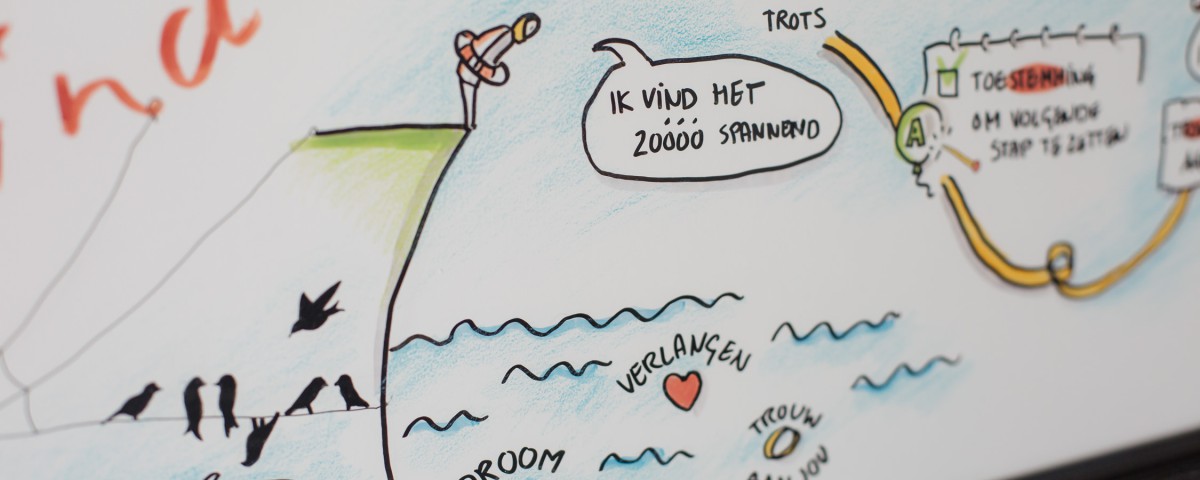 ind
TROTS
IK VIND HET
ZOOOO SPANNEND
A
TOESTEMMING
OM VOLGENDE
STAP TE ZETTEN
VERLANGEN
TROUW
DROOM